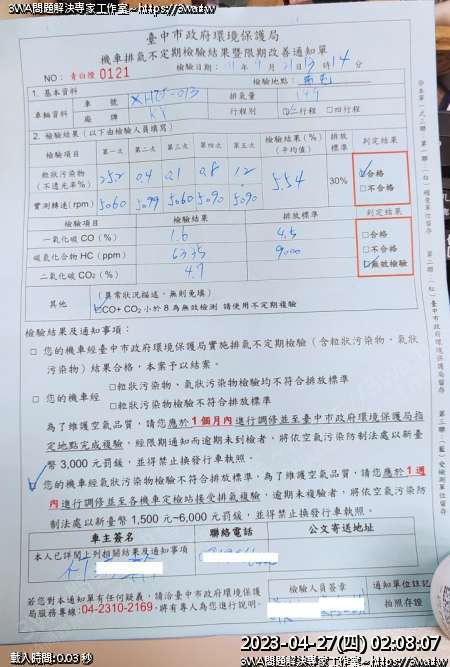 3WA問題解決專家工作室~https://3wa.tw
臺中市政府環境保護局
機車排氣不定期檢驗結果暨限期改善通知單
NO：青白煙 0121
檢驗日期：
檢驗地點：南屯
1. 基本資料
車輛資料
車 號
排氣量
廠 牌
行程別
二行程 □四行程
2. 檢驗結果（以下由檢驗人員填寫）
檢驗項目 第一次 第二次 第三次 第四次 第五次 檢驗結果(%)(平均值) 排放標準 判定結果
粒狀污染物(不透光率%) 25.2 0.4 0.1 0.8 1.2 5.54 30% ☑合格 □不合格
實測轉速(rpm) 5060 5099 5060 5090 5090
檢驗項目 檢驗結果 排放標準 判定結果
一氧化碳 CO（%） 1.6 4.5 □合格
碳氫化合物 HC（ppm） 6335 9000 □不合格
二氧化碳 CO₂（%） 4.7 ☑無效檢驗
其他
(異常狀況描述，無則免填)
☑CO+ CO₂ 小於 8 為無效檢測 請使用不定期複驗
檢驗結果及通知事項：
□ 您的機車經臺中市政府環境保護局實施排氣不定期檢驗（含粒狀污染物、氣狀
污染物）結果合格，本案予以結案。
□粒狀污染物、氣狀污染物檢驗均不符合排放標準
□ 您的機車經
□粒狀污染物檢驗不符合排放標準
為了維護空氣品質，請您應於1個月內進行調修並至臺中市政府環境保護局指
定地點完成複驗，經限期通知而逾期未到檢者，將依空氣污染防制法處以新臺
幣 3,000 元罰鍰，並得禁止換發行車執照。
☑您的機車經氣狀污染物檢驗不符合排放標準，為了維護空氣品質，請您應於1週
內進行調修並至各機車定檢站接受排氣複驗，逾期未複驗者，將依空氣污染防
制法處以新臺幣 1,500 元~6,000 元罰鍰，並得禁止換發行車執照。
車主簽名 聯絡電話 公文寄送地址
本人已詳閱上列相關結果及通知事項
若您對本通知單有任何疑義，請洽臺中市政府環境保護
局服務專線:04-2310-2169，將有專人為您進行說明。
檢驗人員簽章
通知單位註記
拍照存證
2023-04-27(四) 02:08:07
載入時間:0.03 秒
3WA問題解決專家工作室~https://3wa.tw